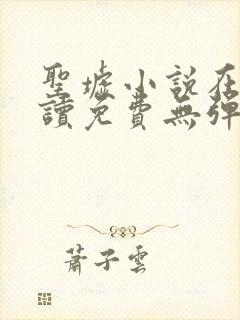 聖墟小說在
讀免費無彈
蕭子雲